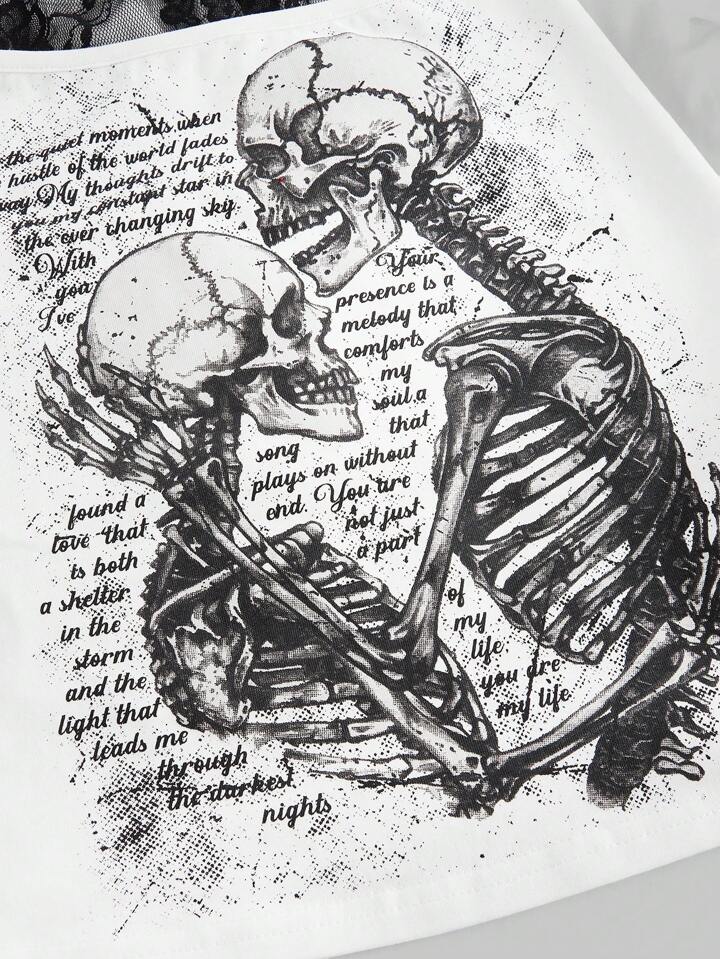 the quiet moments when
hustle of the world fades
way. My thoughts drift to
you my constant star in
the ever changing sky.
With
you
I've
found a
love that
is both
a shelter
in the
storm
and the
light that
leads me
through
the darkest
nights
Your
presence is a
melody that
comforts
my
soul.a
that
song
plays on without
end. You are
not just
a part
of
my
life,
you are
my life